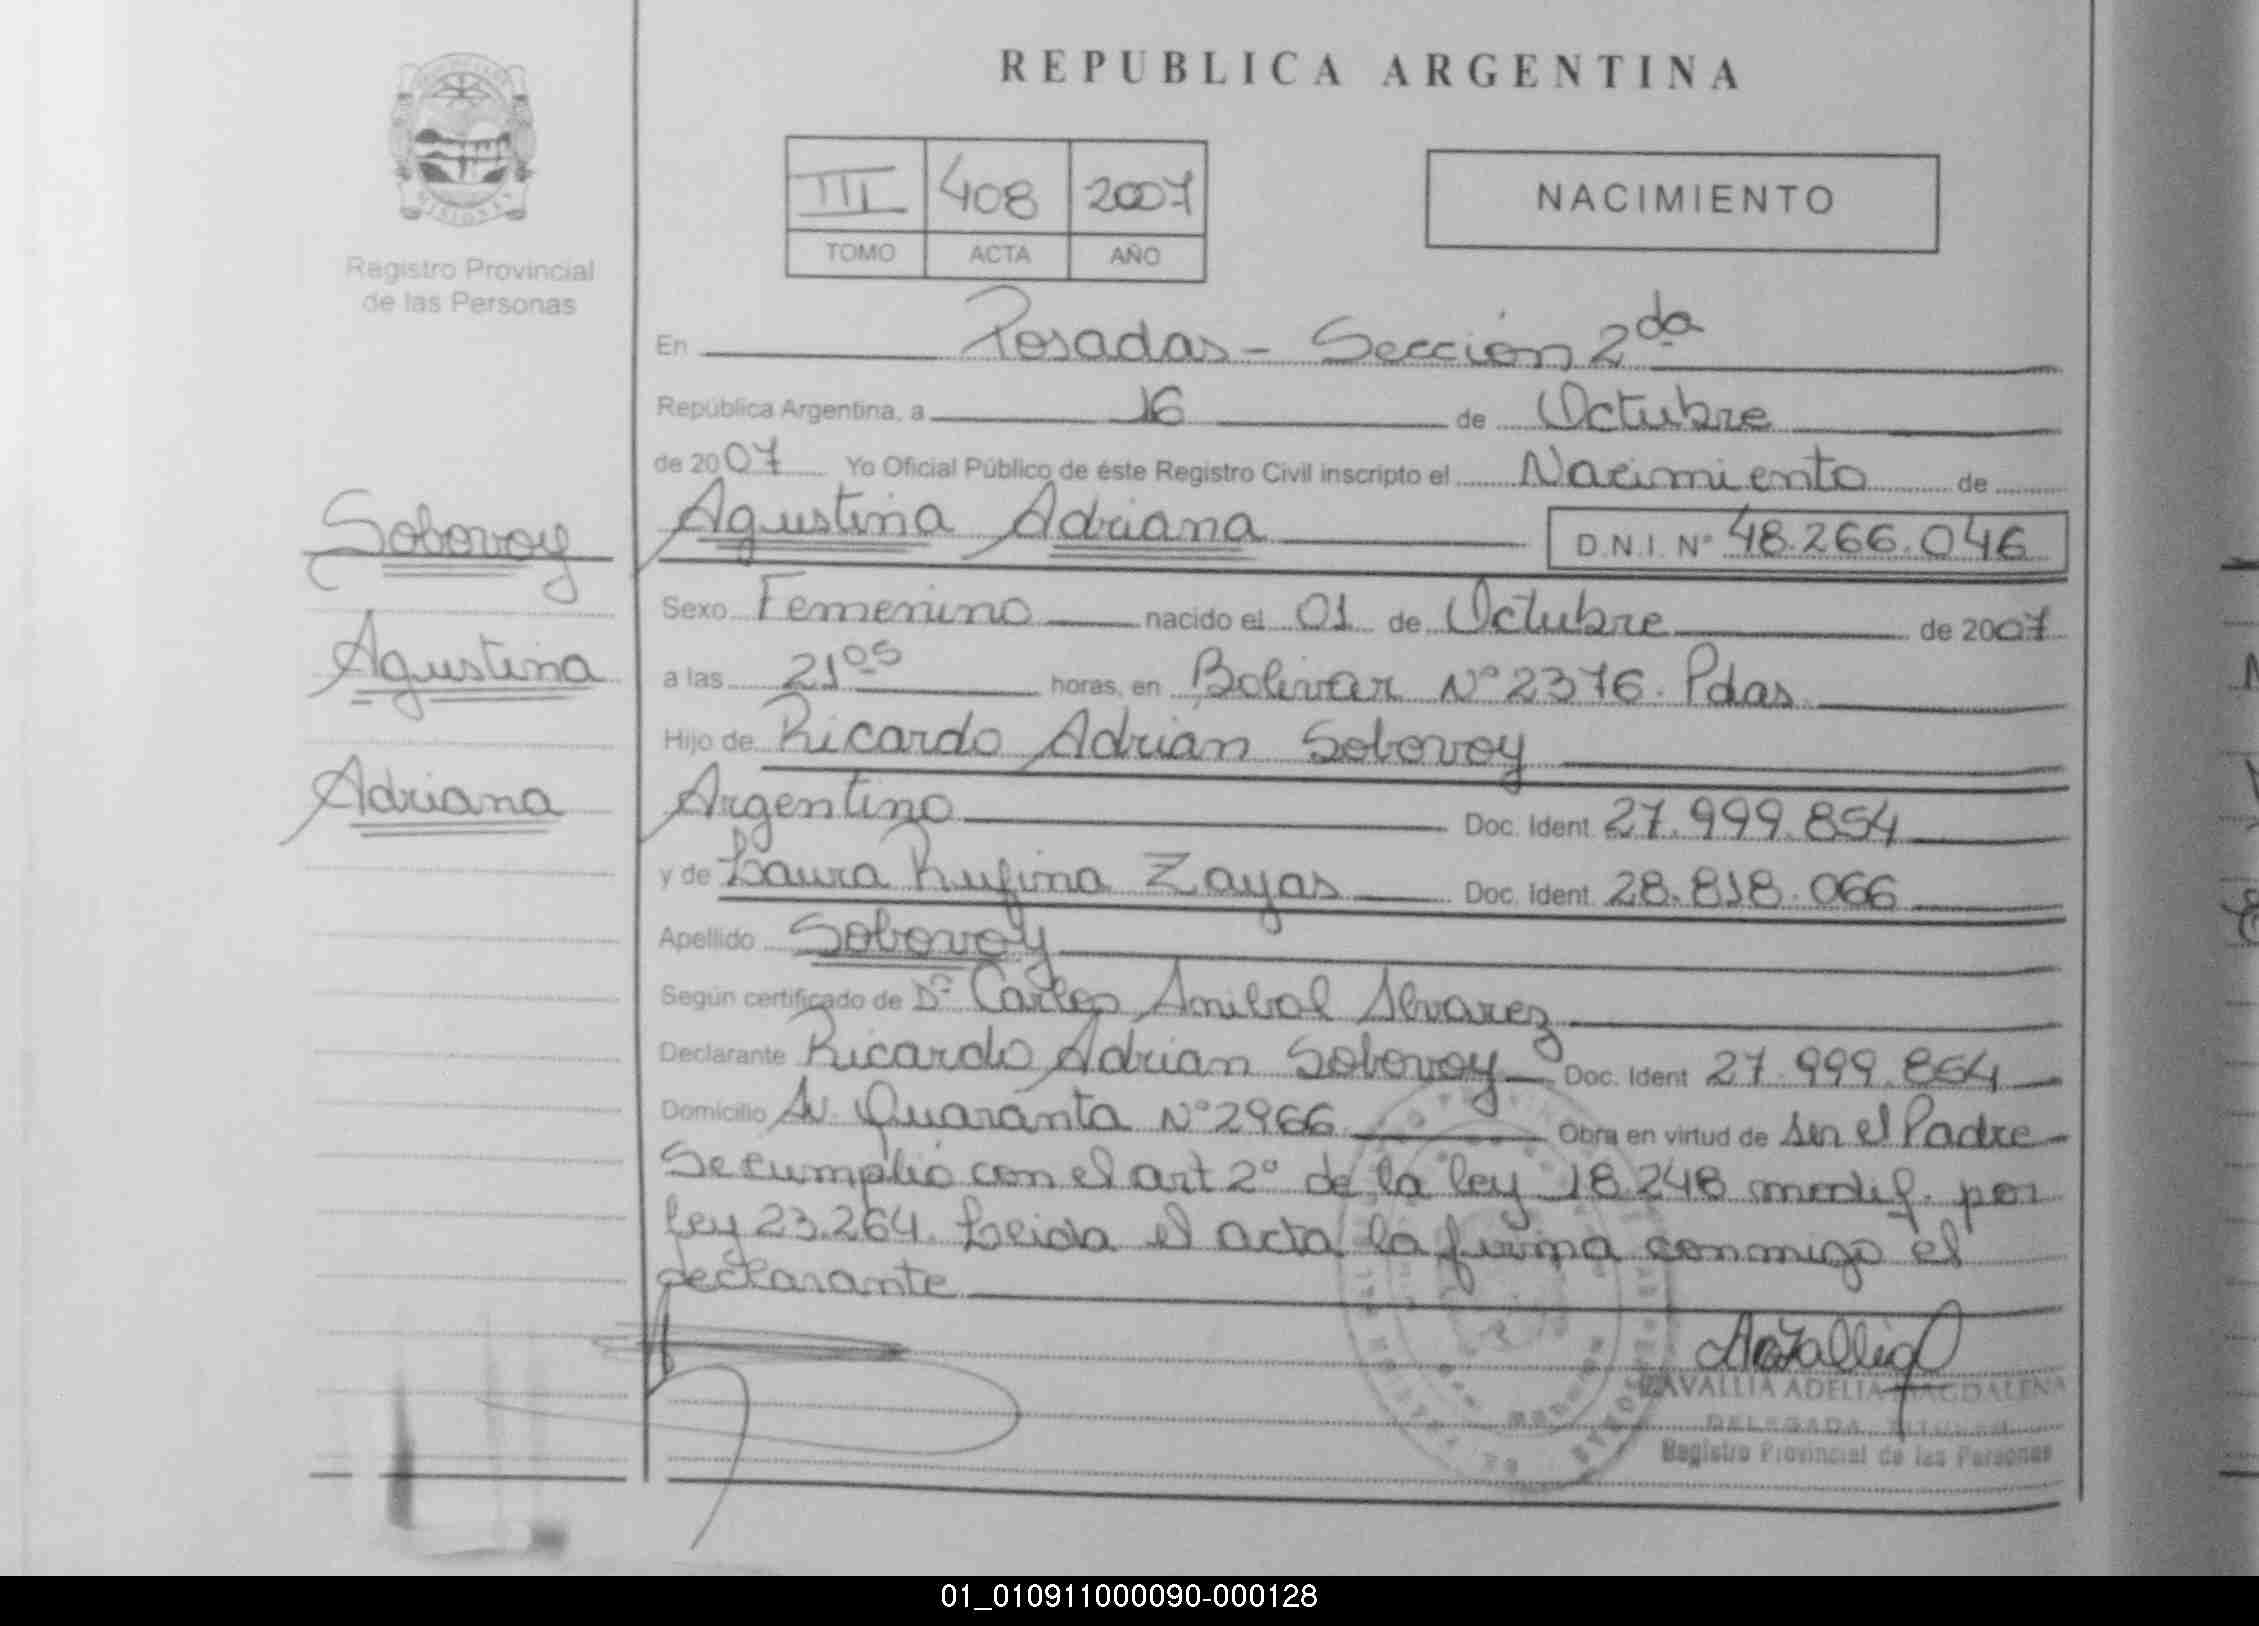 REPUBLICA ARGENTINA
MISIONES
Registro Provincial
de las Personas
III 408 2007
TOMO ACTA AÑO
NACIMIENTO
En Posadas - Sección 2da
República Argentina, a 16 de Octubre
de 2007 Yo Oficial Público de éste Registro Civil inscripto el Nacimiento de
Agustina Adriana D.N.I. Nº 48.266.046
Sobovoy
Agustina
Adriana
Sexo Femenino nacido el 01 de Octubre de 2007
a las 21 05 horas, en Bolivar Nº 2376. Pdas.
Hijo de Ricardo Adrian Sobovoy
Argentino Doc. Ident. 27.999.854
y de Laura Rufina Zayas Doc. Ident. 28.818.066
Apellido Sobovoy
Según certificado de Dr Carlos Anibal Alvarez
Declarante Ricardo Adrian Sobovoy Doc. Ident 27.999.854
Domicilio Av. Quaranta Nº 2966 Obra en virtud de ser el Padre
Se cumplió con el art 2º de la ley 18.248 modif. por
ley 23.264. Leida el acta la firma conmigo el
declarante
ZAVALLIA ADELIA MAGDALENA
DELEGADA TITULAR
Registro Provincial de las Personas
01_010911000090-000128